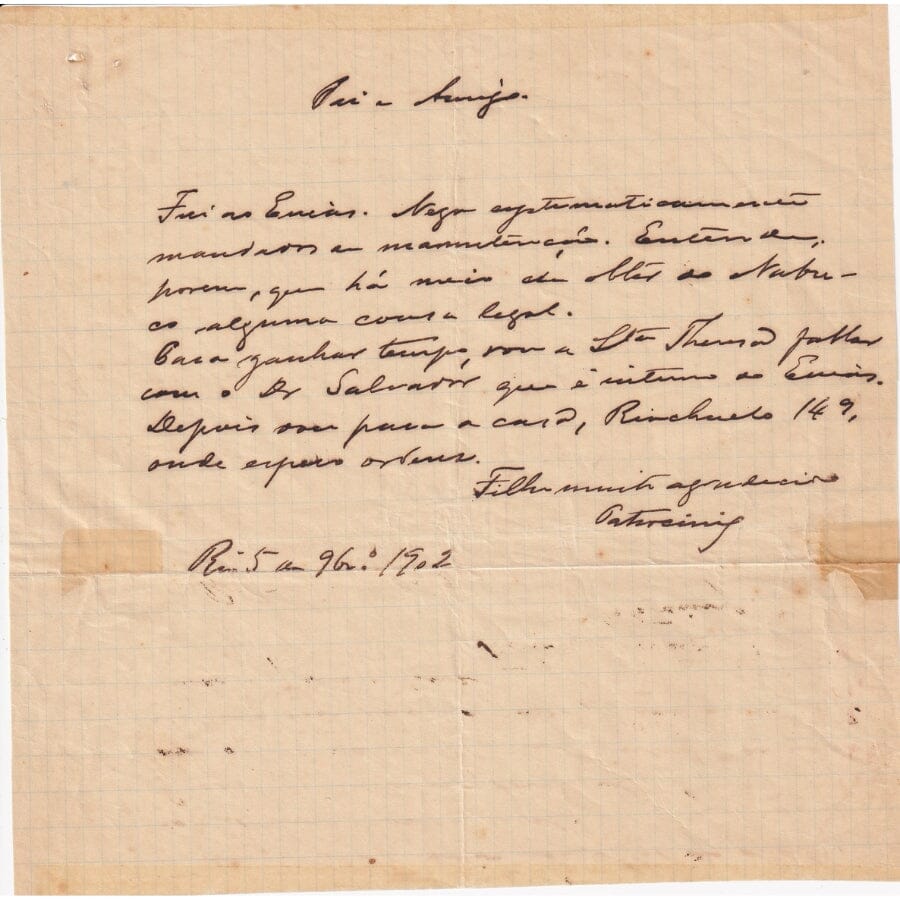 Pai e Amigo.
Fui ao Enéas. Nega systematicamente
mandados de manutenção. Entende,
porem, que há meio de obter do Nabu-
co alguma cousa legal.
Para ganhar tempo, vou a Sta Thereza fallar
com o Dr Salvador que é interno do Enéas.
Depois vou para a casa, Riachuelo 149,
onde espero ordens.
Filho muito agradecido
Patrocinio
Rio 5 de 9br.o 1902